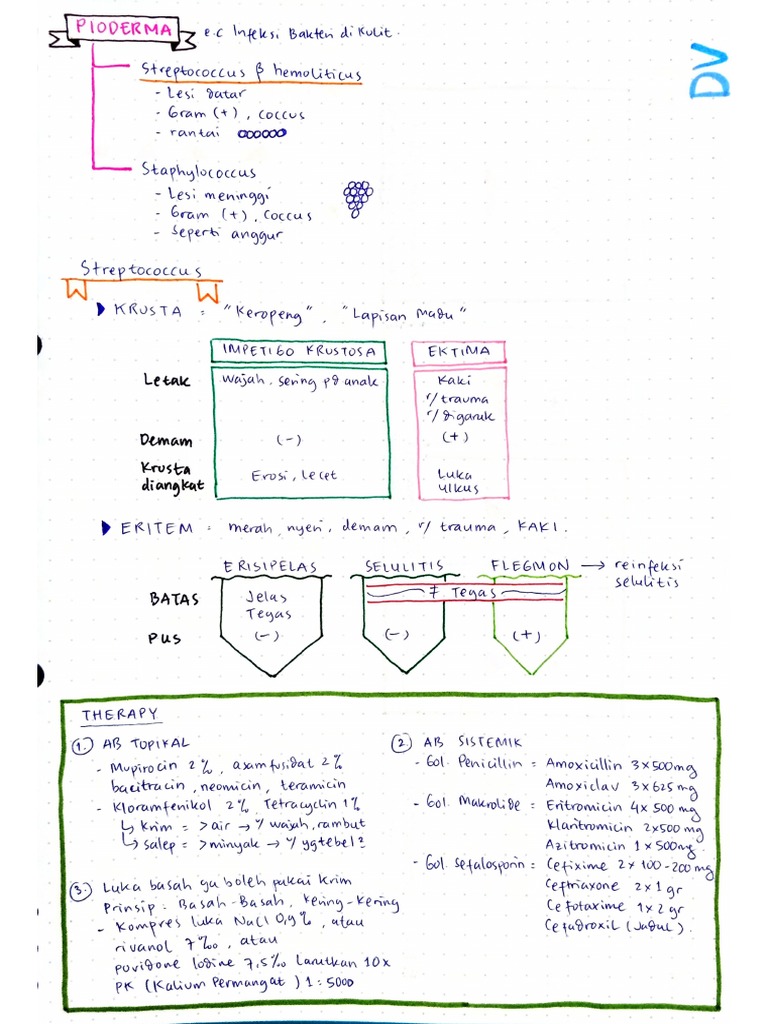 PIODERMA e.c Infeksi Bakteri di Kulit.
DV
Streptococcus β hemoliticus
- Lesi datar
- Gram (+), coccus
- rantai
Staphylococcus
- Lesi meninggi
- Gram (+), coccus
- seperti anggur
Streptococcus
KRUSTA = "Keropeng", "Lapisan Madu"
IMPETIGO KRUSTOSA EKTIMA
Letak wajah, sering pd anak Kaki
r/ trauma
r/ digaruk
Demam (-) (+)
Krusta diangkat Erosi, lecet Luka
ulkus
ERITEM = merah, nyeri, demam, r/ trauma, KAKI.
ERISIPELAS SELULITIS FLEGMON → reinfeksi
selulitis
BATAS Jelas ≠ Tegas
Tegas
PUS (-) (-) (+)
THERAPY
1. AB TOPIKAL
- Mupirocin 2%, asam fusidat 2%
bacitracin, neomicin, teramicin
- Kloramfenikol 2%, Tetracyclin 1%
↳ krim = > air → u/ wajah, rambut
↳ salep = > minyak → u/ yg tebel2
2. AB SISTEMIK
- Gol. Penicillin = Amoxicillin 3x500mg
Amoxiclav 3x625 mg
- Gol. Makrolide = Eritromicin 4x 500 mg
Klaritromicin 2x500 mg
Azitromicin 1x500mg.
- Gol. Sefalosporin = Cefixime 2x100-200mg
Ceftriaxone 2x1 gr
Cefotaxime 1x2 gr
Cefadroxil (Jadul).
3. Luka basah ga boleh pakai krim
Prinsip = Basah-Basah, Kering-Kering
- Kompres luka NaCl 0,9%, atau
rivanol 7‰, atau
povidone Iodine 7,5‰ Larutkan 10x
PK (Kalium Permangat) 1:5000